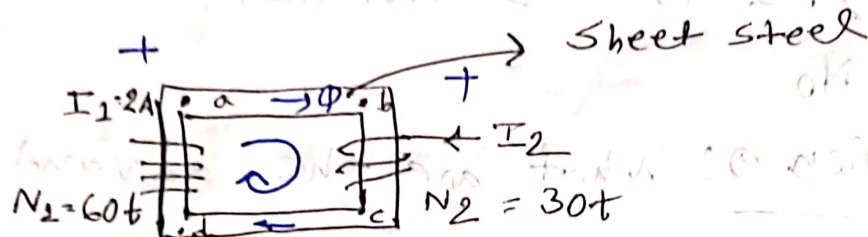 + Sheet steel
I1=2A a → Φ b +
← I2
N2=60t d c N2 = 30t
No